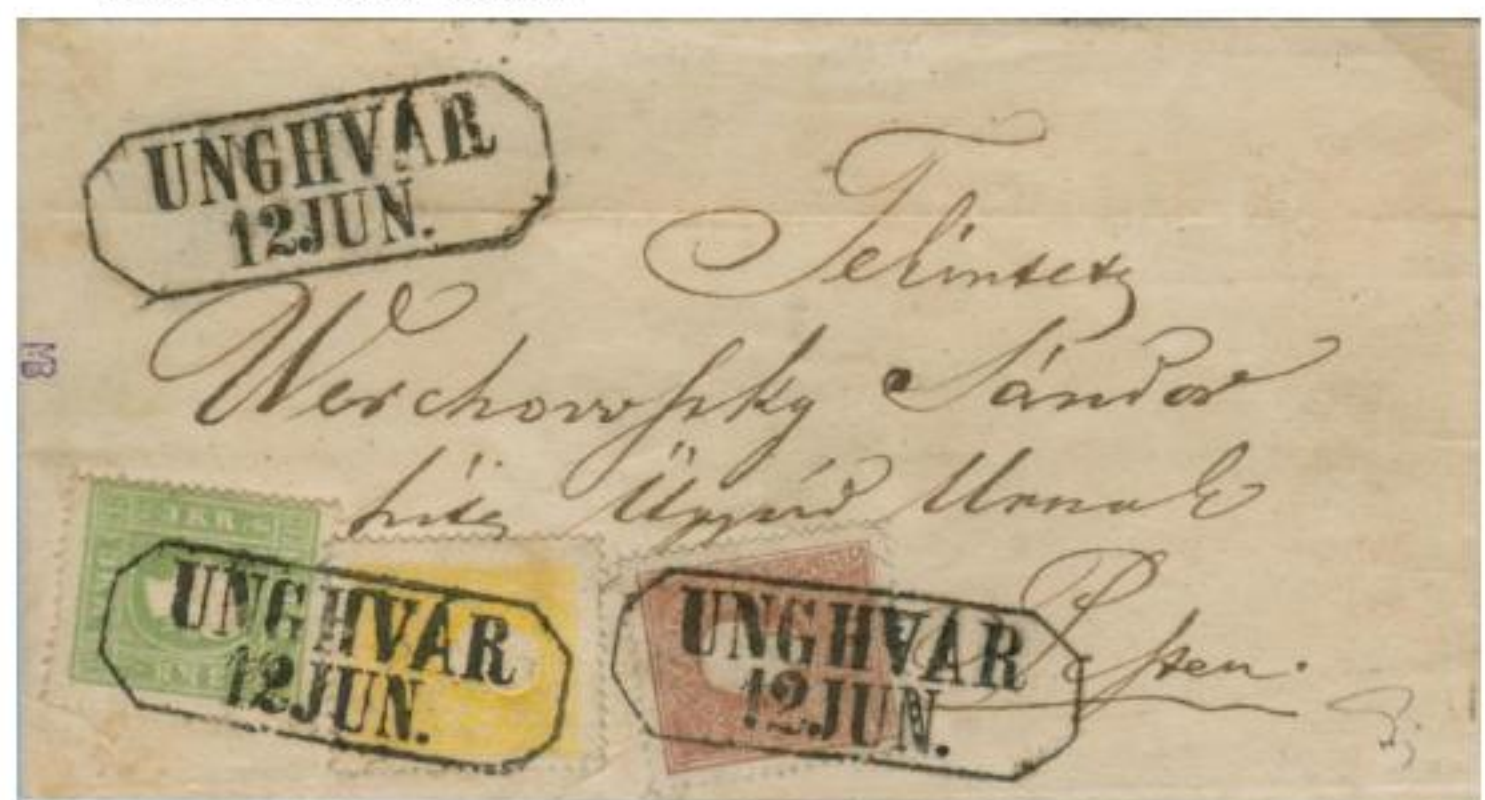 UNGHVÁR
12 JUN.
Tekintetz
Werchovofszky Sándor
hites Ügyvéd Urnak
Pesten.
MB
3 KR
UNGHVÁR
12 JUN.
UNGHVÁR
12 JUN.